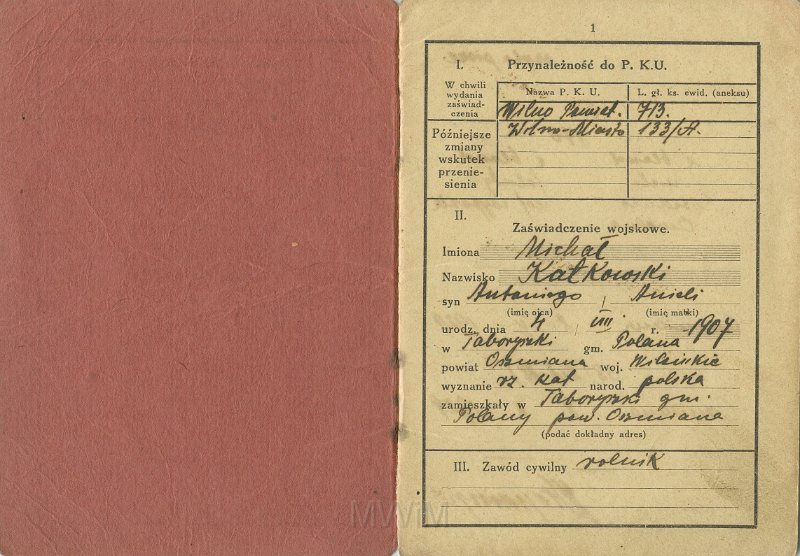 1
I. Przynależność do P. K. U.
W chwili
wydania
zaświad-
czenia
Nazwa P. K. U. L. gł. ks. ewid. (aneksu)
Wilno Powiat. 713.
Późniejsze
zmiany
wskutek
przenie-
sienia
Wilno-Miasto 133/A.
II.
Zaświadczenie wojskowe.
Imiona Michał
Nazwisko Kałkowski
syn Antoniego i Anieli
(imię ojca) (imię matki)
urodz. dnia 4 VIII. r. 1907
w Taboryszki gm. Polana
powiat Oszmiana woj. Wileńskie
wyznanie rz. kat narod. polska
zamieszkały w Taboryszki gm.
Polany pow. Oszmiana
(podać dokładny adres)
III. Zawód cywilny rolnik
MWiM